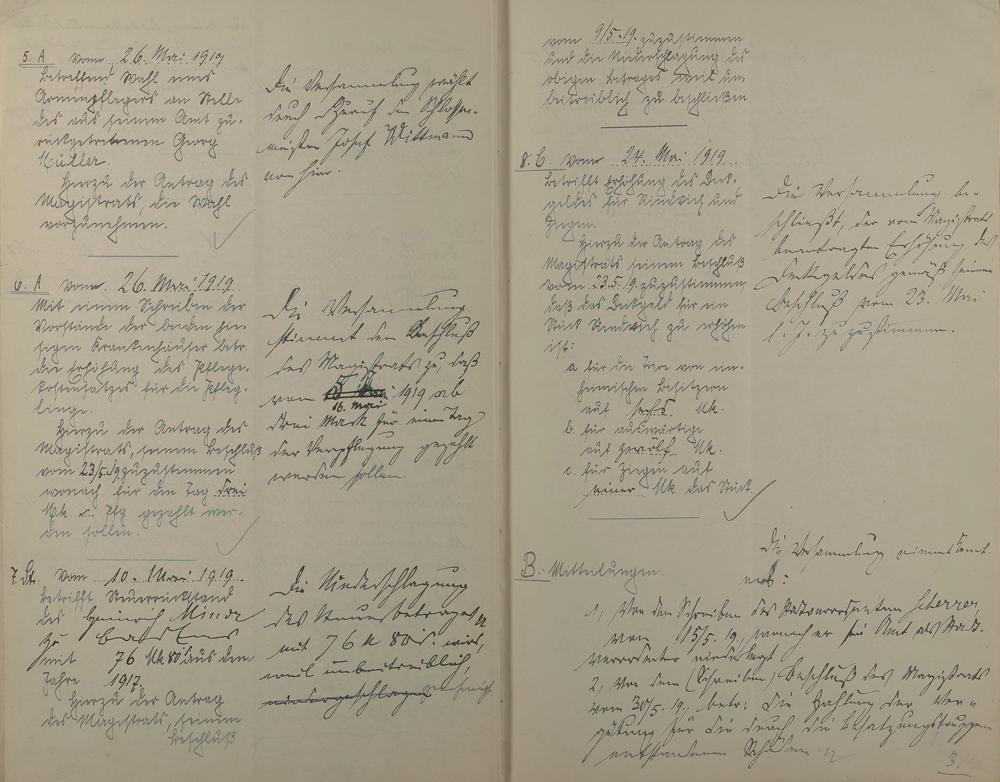 5. A vom 26. Mai 1919
betreffend Wahl eines
Armenpflegers an Stelle
des aus seinem Amt zu-
rückgetretenen Georg
Müller.
Hierzu der Antrag des
Magistrats, die Wahl
vorzunehmen.
Die Versammlung wählt
durch Zuruf den Schlosser-
meister Josef Wittmann
von hier.
6. A vom 26. Mai 1919.
Mit einem Schreiben der
Vorstände der beiden hie-
sigen Krankenhäuser betr.
die Erhöhung des Pflege-
kostensatzes für die Pfleg-
linge.
Hierzu der Antrag des
Magistrats, seinem Beschluß
vom 23/5.19. zuzustimmen
wonach für den Tag drei
Mk. u. Pfg gezahlt wer-
den sollen.
Die Versammlung
stimmt dem Beschluß
des Magistrats zu, daß
vom
16. Mai 1919 ab
drei Mark für einen Tag
der Verpflegung gezahlt
werden sollen.
7. St. vom 10. Mai 1919.
betrifft Steuerrückstand
des Heinrich
zu Bad Ems
mit 76 Mk 80 aus dem
Jahre 1917.
Hierzu der Antrag
des Magistrats, seinem
Beschluß
Die Niederschlagung
des Steuerbetrages
mit 76 M 80 wird,
weil unbeitreiblich,
niedergeschlagen genehmigt.
vom 9/5.19. zuzustimmen
und die Niederschlagung des
obigen Betrages weil un-
beitreiblich zu beschließen
8. B. vom 24. Mai 1919.
betrifft Erhöhung des Deck-
geldes für Rindvieh und
Ziegen.
Hierzu der Antrag des
Magistrats seinem Beschluß
vom 23.5.19. zuzustimmen,
daß das Deckgeld für ein
Stück Rindvieh zu erhöhen
ist:
a. für die Tiere von ein-
heimischen Besitzern
auf sechs Mk.
b. für auswärtige
auf zwölf Mk.
c. für Ziegen auf
einer Mk das Stück.
Die Versammlung be-
schließt, der vom Magistrat
beantragten Erhöhung des
Deckgeldes gemäß seinem
Beschluß vom 23. Mai
l. J. zuzustimmen.
B. Mitteilungen.
Die Versammlung nimmt Kennt-
nis:
1, Von dem Schreiben des Stadtverordneten Scherrer,
vom 15/5. 19., wonach er sein Amt als Stadt-
verordneter niederlegt
2, Von dem (Schreiben) Beschluß des Magistrats
vom 30/5. 19., betr. die Zahlung der Ver-
gütung für die durch die Besatzungstruppen
entstandenen Schäden
3.